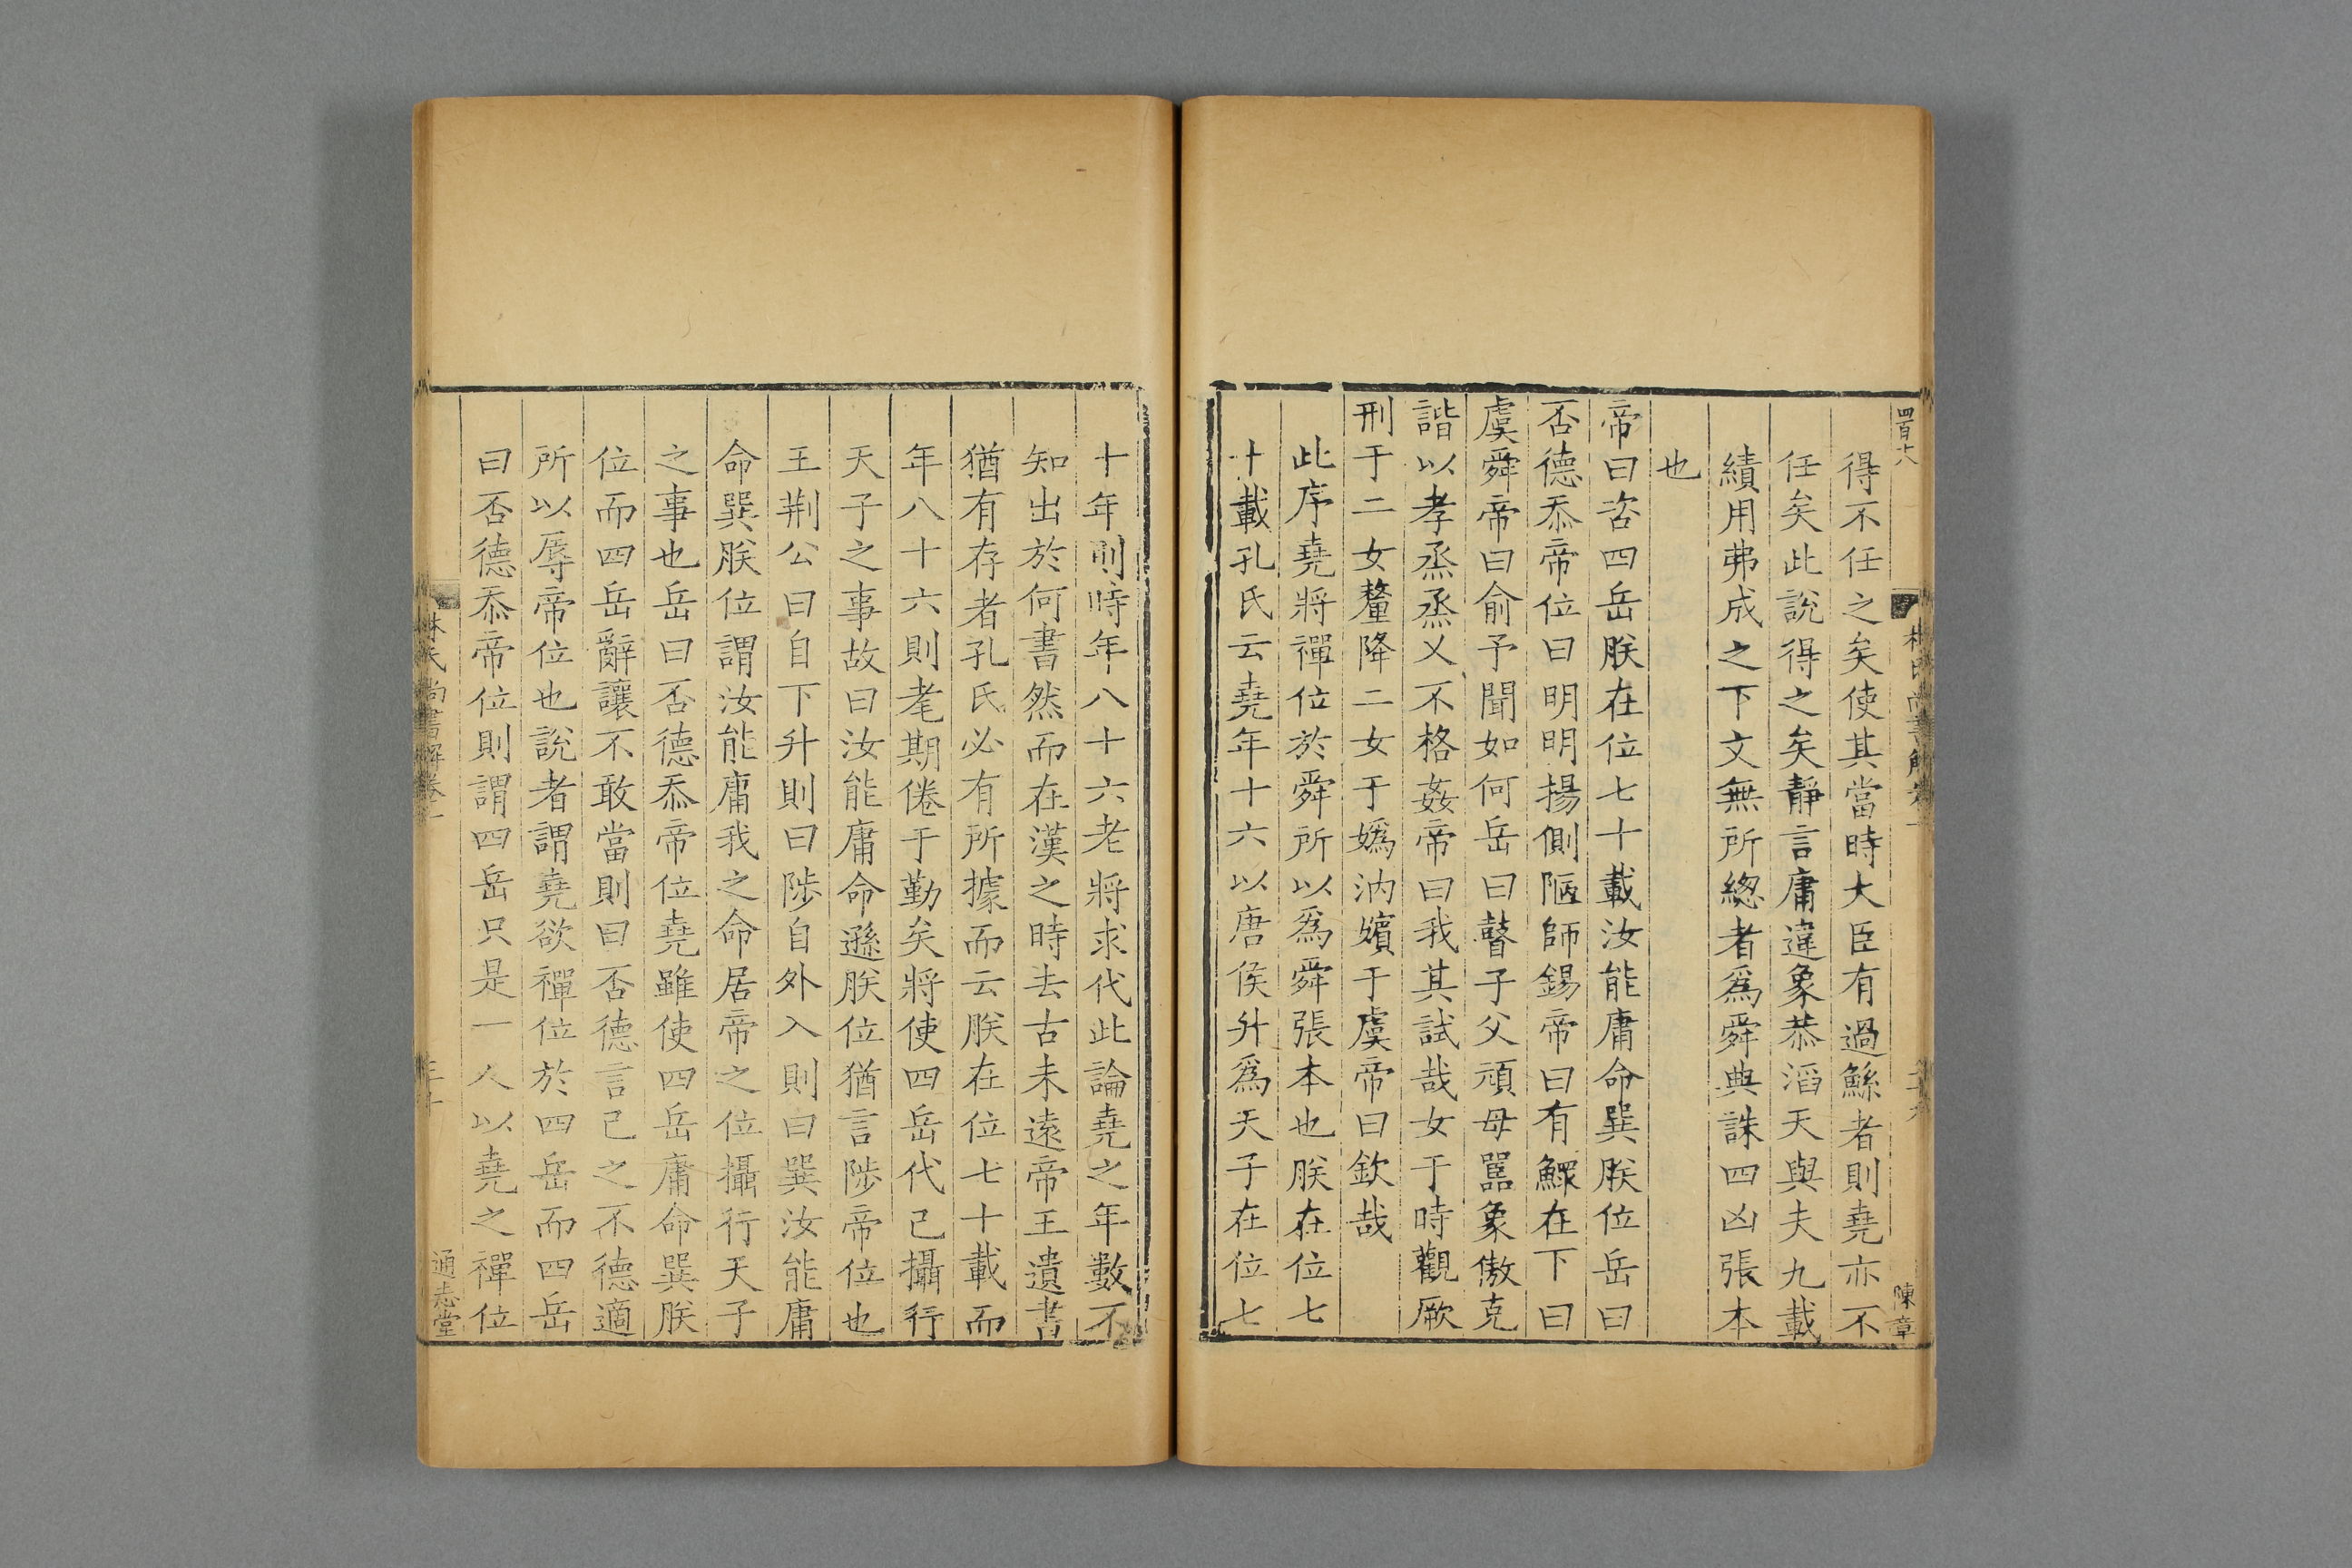 四百十八
林氏尚書解卷一
二十九
陳章
得不任之矣使其當時大臣有過鯀者則堯亦不
任矣此說得之矣靜言庸違象恭滔天與夫九載
績用弗成之下文無所緫者爲舜典誅四凶張本
也
帝曰咨四岳朕在位七十載汝能庸命巽朕位岳曰
否德忝帝位曰明明揚側陋師錫帝曰有鰥在下曰
虞舜帝曰俞予聞如何岳曰瞽子父頑母嚚象傲克
諧以孝烝烝乂不格姦帝曰我其試哉女于時觀厥
刑于二女釐降二女于嬀汭嬪于虞帝曰欽哉
此序堯將禪位於舜所以爲舜張本也朕在位七
十載孔氏云堯年十六以唐侯升爲天子在位七
十年則時年八十六老將求代此論堯之年數不
知出於何書然而在漢之時去古未遠帝王遺書
猶有存者孔氏必有所據而云朕在位七十載而
年八十六則耄期倦于勤矣將使四岳代己攝行
天子之事故曰汝能庸命遜朕位猶言陟帝位也
王荆公曰自下升則曰陟自外入則曰巽汝能庸
命巽朕位謂汝能庸我之命居帝之位攝行天子
之事也岳曰否德忝帝位堯雖使四岳庸命巽朕
位而四岳辭讓不敢當則曰否德言己之不德適
所以辱帝位也說者謂堯欲禪位於四岳而四岳
曰否德忝帝位則謂四岳只是一人以堯之禪位
林氏尚書解卷一
三十
通志堂